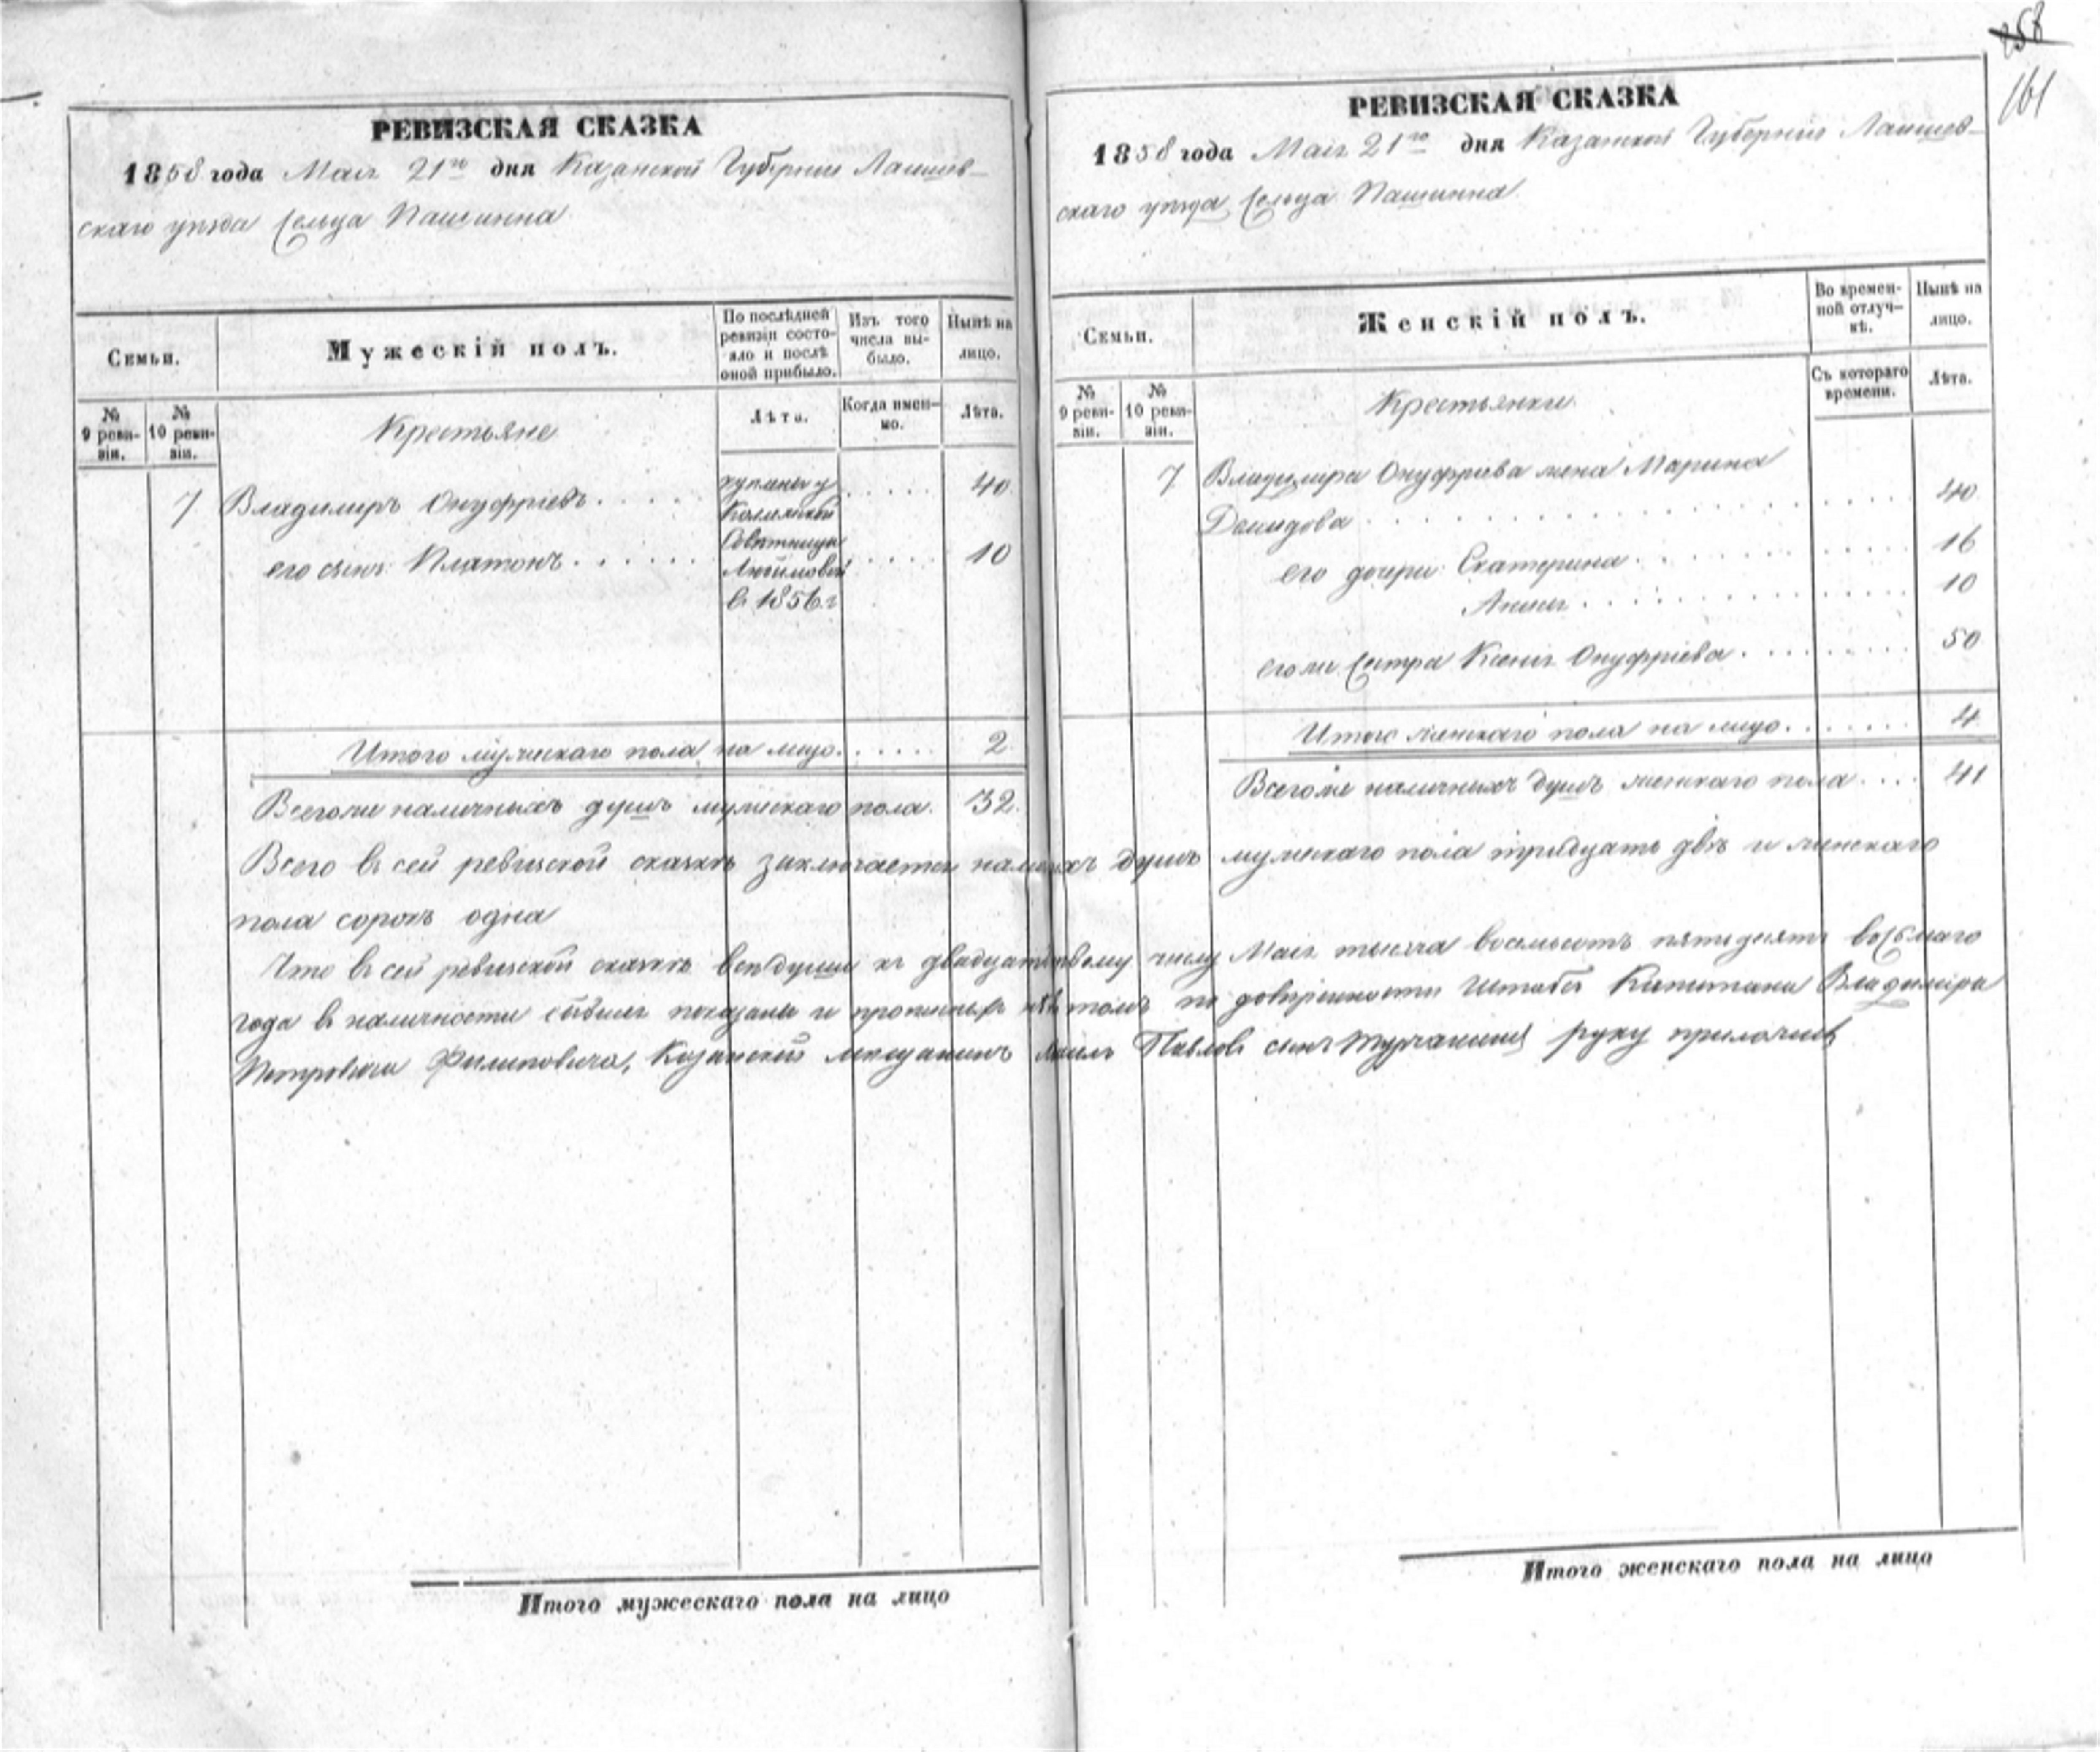 258
161
РЕВИЗСКАЯ СКАЗКА
1858 года Маія 21го дня Казанской Губерніи Лаишев-
скаго уѣзда Сельца Пашкина
Семьи.
Мужескій полъ.
По послѣдней ревизіи состо-
яло и послѣ оной прибыло.
Изъ того числа вы-
было.
Нынѣ на лицо.
№ 9 реви-
зіи.
№ 10 реви-
зіи.
Крестьяне
Лѣта.
Когда имен-
но.
Лѣта.
7 Владимиръ Онуфріевъ . . . . . 40
купленъ у
Совѣтницы
его сынъ Платонъ . . . . . . 10
в 1856 г
Итого мужескаго пола на лицо . . . . . . 2
Всего же наличныхъ душъ мужескаго пола. 32.
РЕВИЗСКАЯ СКАЗКА
1858 года Маія 21го дня Казанской Губерніи Лаишев-
скаго уѣзда Сельца Пашкина
Семьи.
Женскій полъ.
Во времен-
ной отлуч-
кѣ.
Нынѣ на лицо.
№ 9 реви-
зіи.
№ 10 реви-
зіи.
Крестьянки
Съ котораго времени.
Лѣта.
7 Владимира Онуфріева жена Марина
Демидова . . . . . . . . . . 40
его дочери: Екатерина . . . . . . . 16
. . . . . . . . . . 10
его же Сестра Ксенія Онуфріева . . . . . . . 50
Итого женскаго пола на лицо . . . . . . . 4
Всего же наличныхъ душъ женскаго пола . . . . 41
Всего въ сей ревизской сказкѣ заключается душъ мужескаго пола тридцать двѣ и женскаго
пола сорокъ одна
Что въ сей ревизской сказкѣ всѣ души къ числу Маія тысяча восемьсотъ пятьдесятъ восьмаго
года в наличности показаны и прописныхъ нѣтъ в томъ по довѣренности Штабсъ Капитана Владиміра
Петровича Филиповича, Казанской мещанинъ Павловъ сынъ руку приложилъ
Итого мужескаго пола на лицо
Итого женскаго пола на лицо